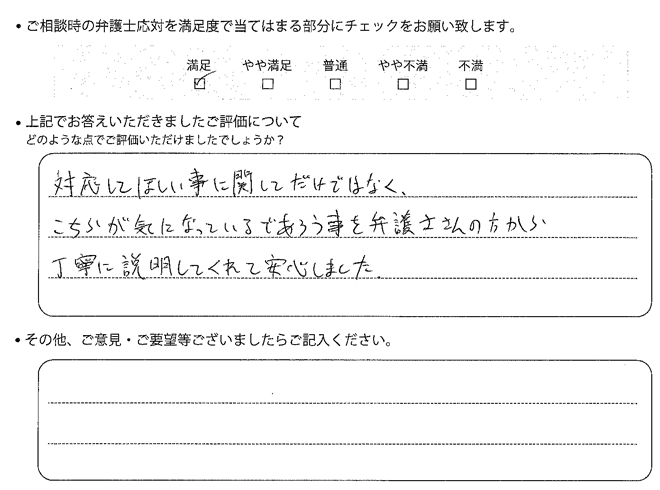 • ご相談時の弁護士応対を満足度で当てはまる部分にチェックをお願い致します。
満足 やや満足 普通 やや不満 不満
☑ □ □ □ □
• 上記でお答えいただきましたご評価について
どのような点でご評価いただけましたでしょうか？
対応してほしい事に関してだけではなく、
こちらが気になっているであろう事を弁護士さんの方から
丁寧に説明してくれて安心しました.
• その他、ご意見・ご要望等ございましたらご記入ください。